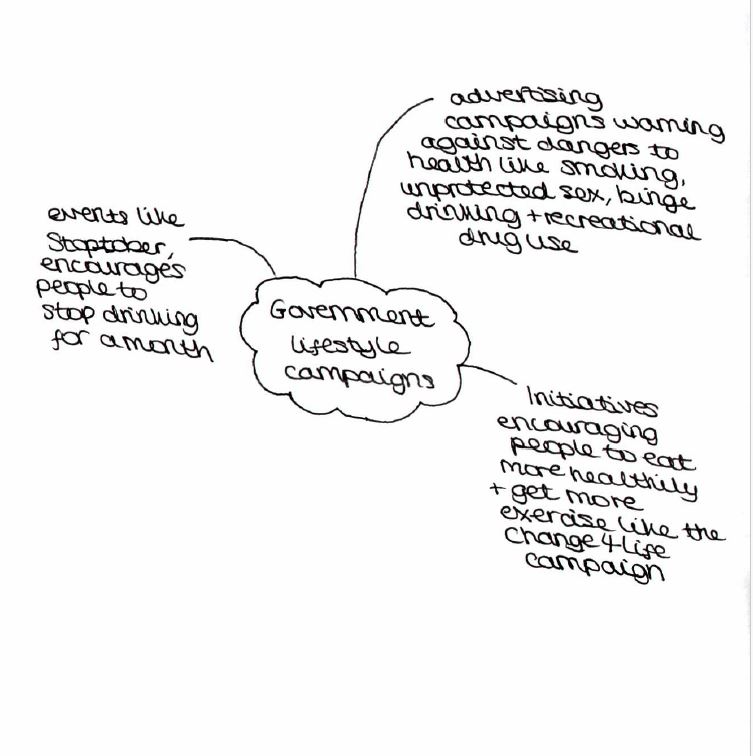 advertising
campaigns warning
against dangers to
health like smoking,
unprotected sex, binge
drinking + recreational
drug use
events like
Stoptober,
encourages
people to
stop drinking
for a month
Government
lifestyle
campaigns
Initiatives
encouraging
people to eat
more healthily
+ get more
exercise like the
Change4Life
campaign